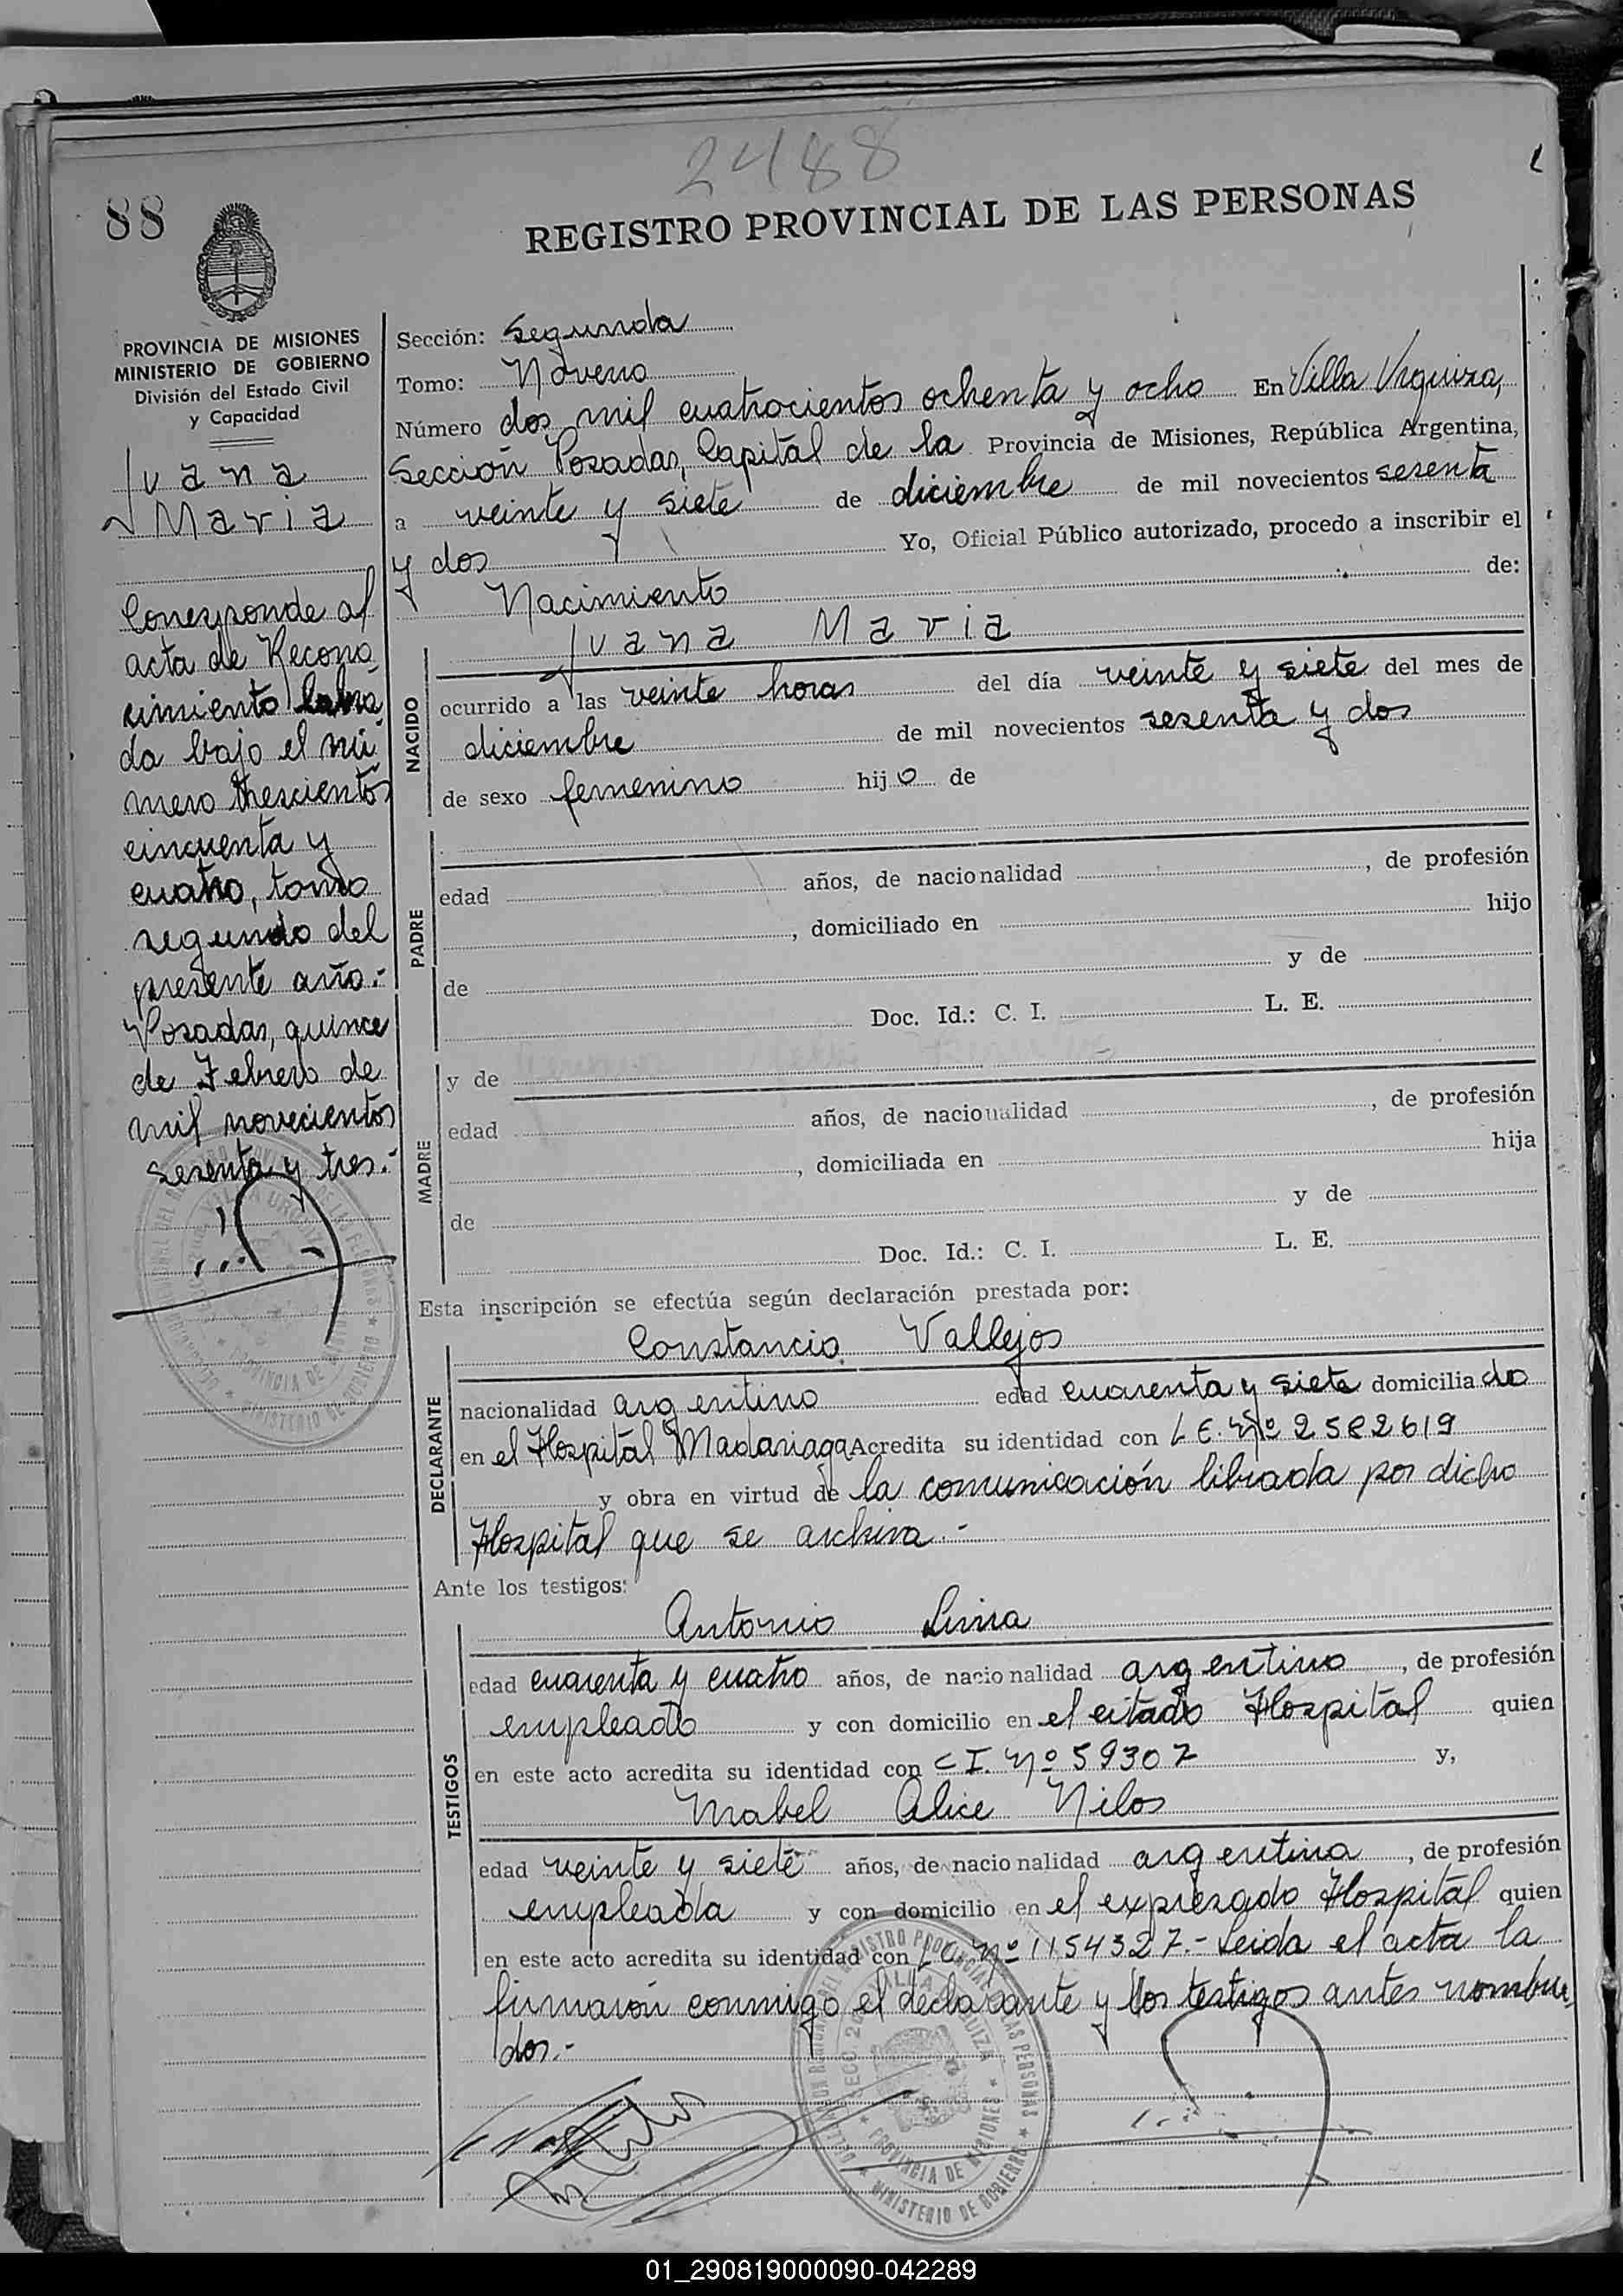 2488
88
REGISTRO PROVINCIAL DE LAS PERSONAS
PROVINCIA DE MISIONES
MINISTERIO DE GOBIERNO
División del Estado Civil
y Capacidad
Juana
Maria
Corresponde al
acta de Recono
cimiento labra
da bajo el nú
mero trescientos
cincuenta y
cuatro, tomo
segundo del
presente año.-
Posadas, quince
de Febrero de
mil novecientos
sesenta y tres.-
Sección: Segunda
Tomo: Noveno
Número dos mil cuatrocientos ochenta y ocho En Villa Urquiza,
Sección Posadas, Capital de la Provincia de Misiones, República Argentina,
a veinte y siete de diciembre de mil novecientos sesenta
y dos Yo, Oficial Público autorizado, procedo a inscribir el
Nacimiento de:
Juana Maria
NACIDO
ocurrido a las veinte horas del día veinte y siete del mes de
diciembre de mil novecientos sesenta y dos
de sexo femenino hijo de
PADRE
edad años, de nacionalidad , de profesión
, domiciliado en hijo
de y de
Doc. Id.: C. I. L. E.
MADRE
y de
edad años, de nacionalidad , de profesión
, domiciliada en hija
de y de
Doc. Id.: C. I. L. E.
Esta inscripción se efectúa según declaración prestada por:
DECLARANTE
Constancio Vallejos
nacionalidad argentino edad cuarenta y siete domiciliado
en el Hospital Madariaga Acredita su identidad con L E. Nº 2582619
y obra en virtud de la comunicación librada por dicho
Hospital que se archiva.-
Ante los testigos:
TESTIGOS
Antonio Lima
edad cuarenta y cuatro años, de nacionalidad argentino, de profesión
empleado y con domicilio en el citado Hospital quien
en este acto acredita su identidad con C I. Nº 59307 y,
Mabel Alice Nilos
edad veinte y siete años, de nacionalidad argentina, de profesión
empleada y con domicilio en el expresado Hospital quien
en este acto acredita su identidad con L C. Nº 1154327.- Leida el acta la
firmaron conmigo el declarante y los testigos antes nombra
dos.-
DELEGACION REGIONAL DEL REGISTRO PROVINCIAL DE LAS PERSONAS
SECC. 2da. VILLA URQUIZA
PROVINCIA DE MISIONES
MINISTERIO DE GOBIERNO
01_290819000090-042289